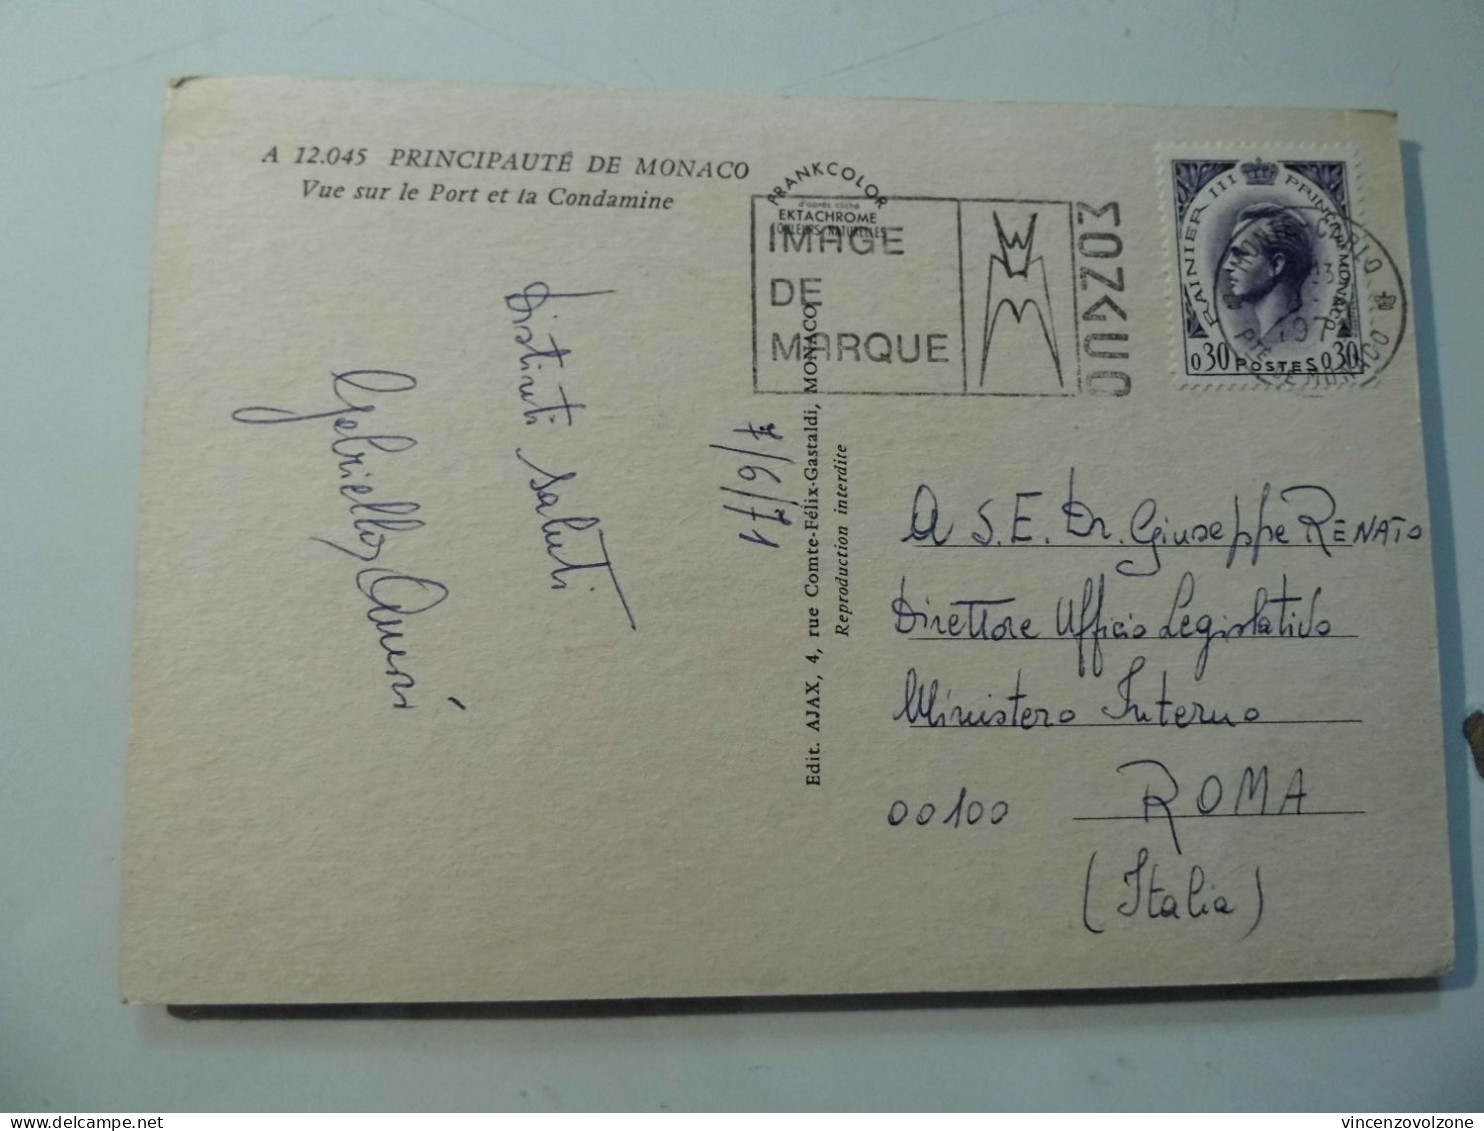 A 12.045 PRINCIPAUTÉ DE MONACO
Vue sur le Port et la Condamine
FRANKCOLOR
d'après cliché
EKTACHROME
COULEURS NATURELLES
IMAGE
DE
MARQUE
MONACO
RAINIER III PRINCE DE MONACO
0,30 POSTES 0,30
MONTE-CARLO
PTE DE MONACO
Distinti saluti
7/6/71
Edit. AJAX, 4, rue Comte-Félix-Gastaldi, MONACO
Reproduction interdite
A S.E. Dr. Giuseppe RENATO
Direttore Ufficio Legislativo
Ministero Interno
00100 ROMA
(Italia)
vincenzovolzone